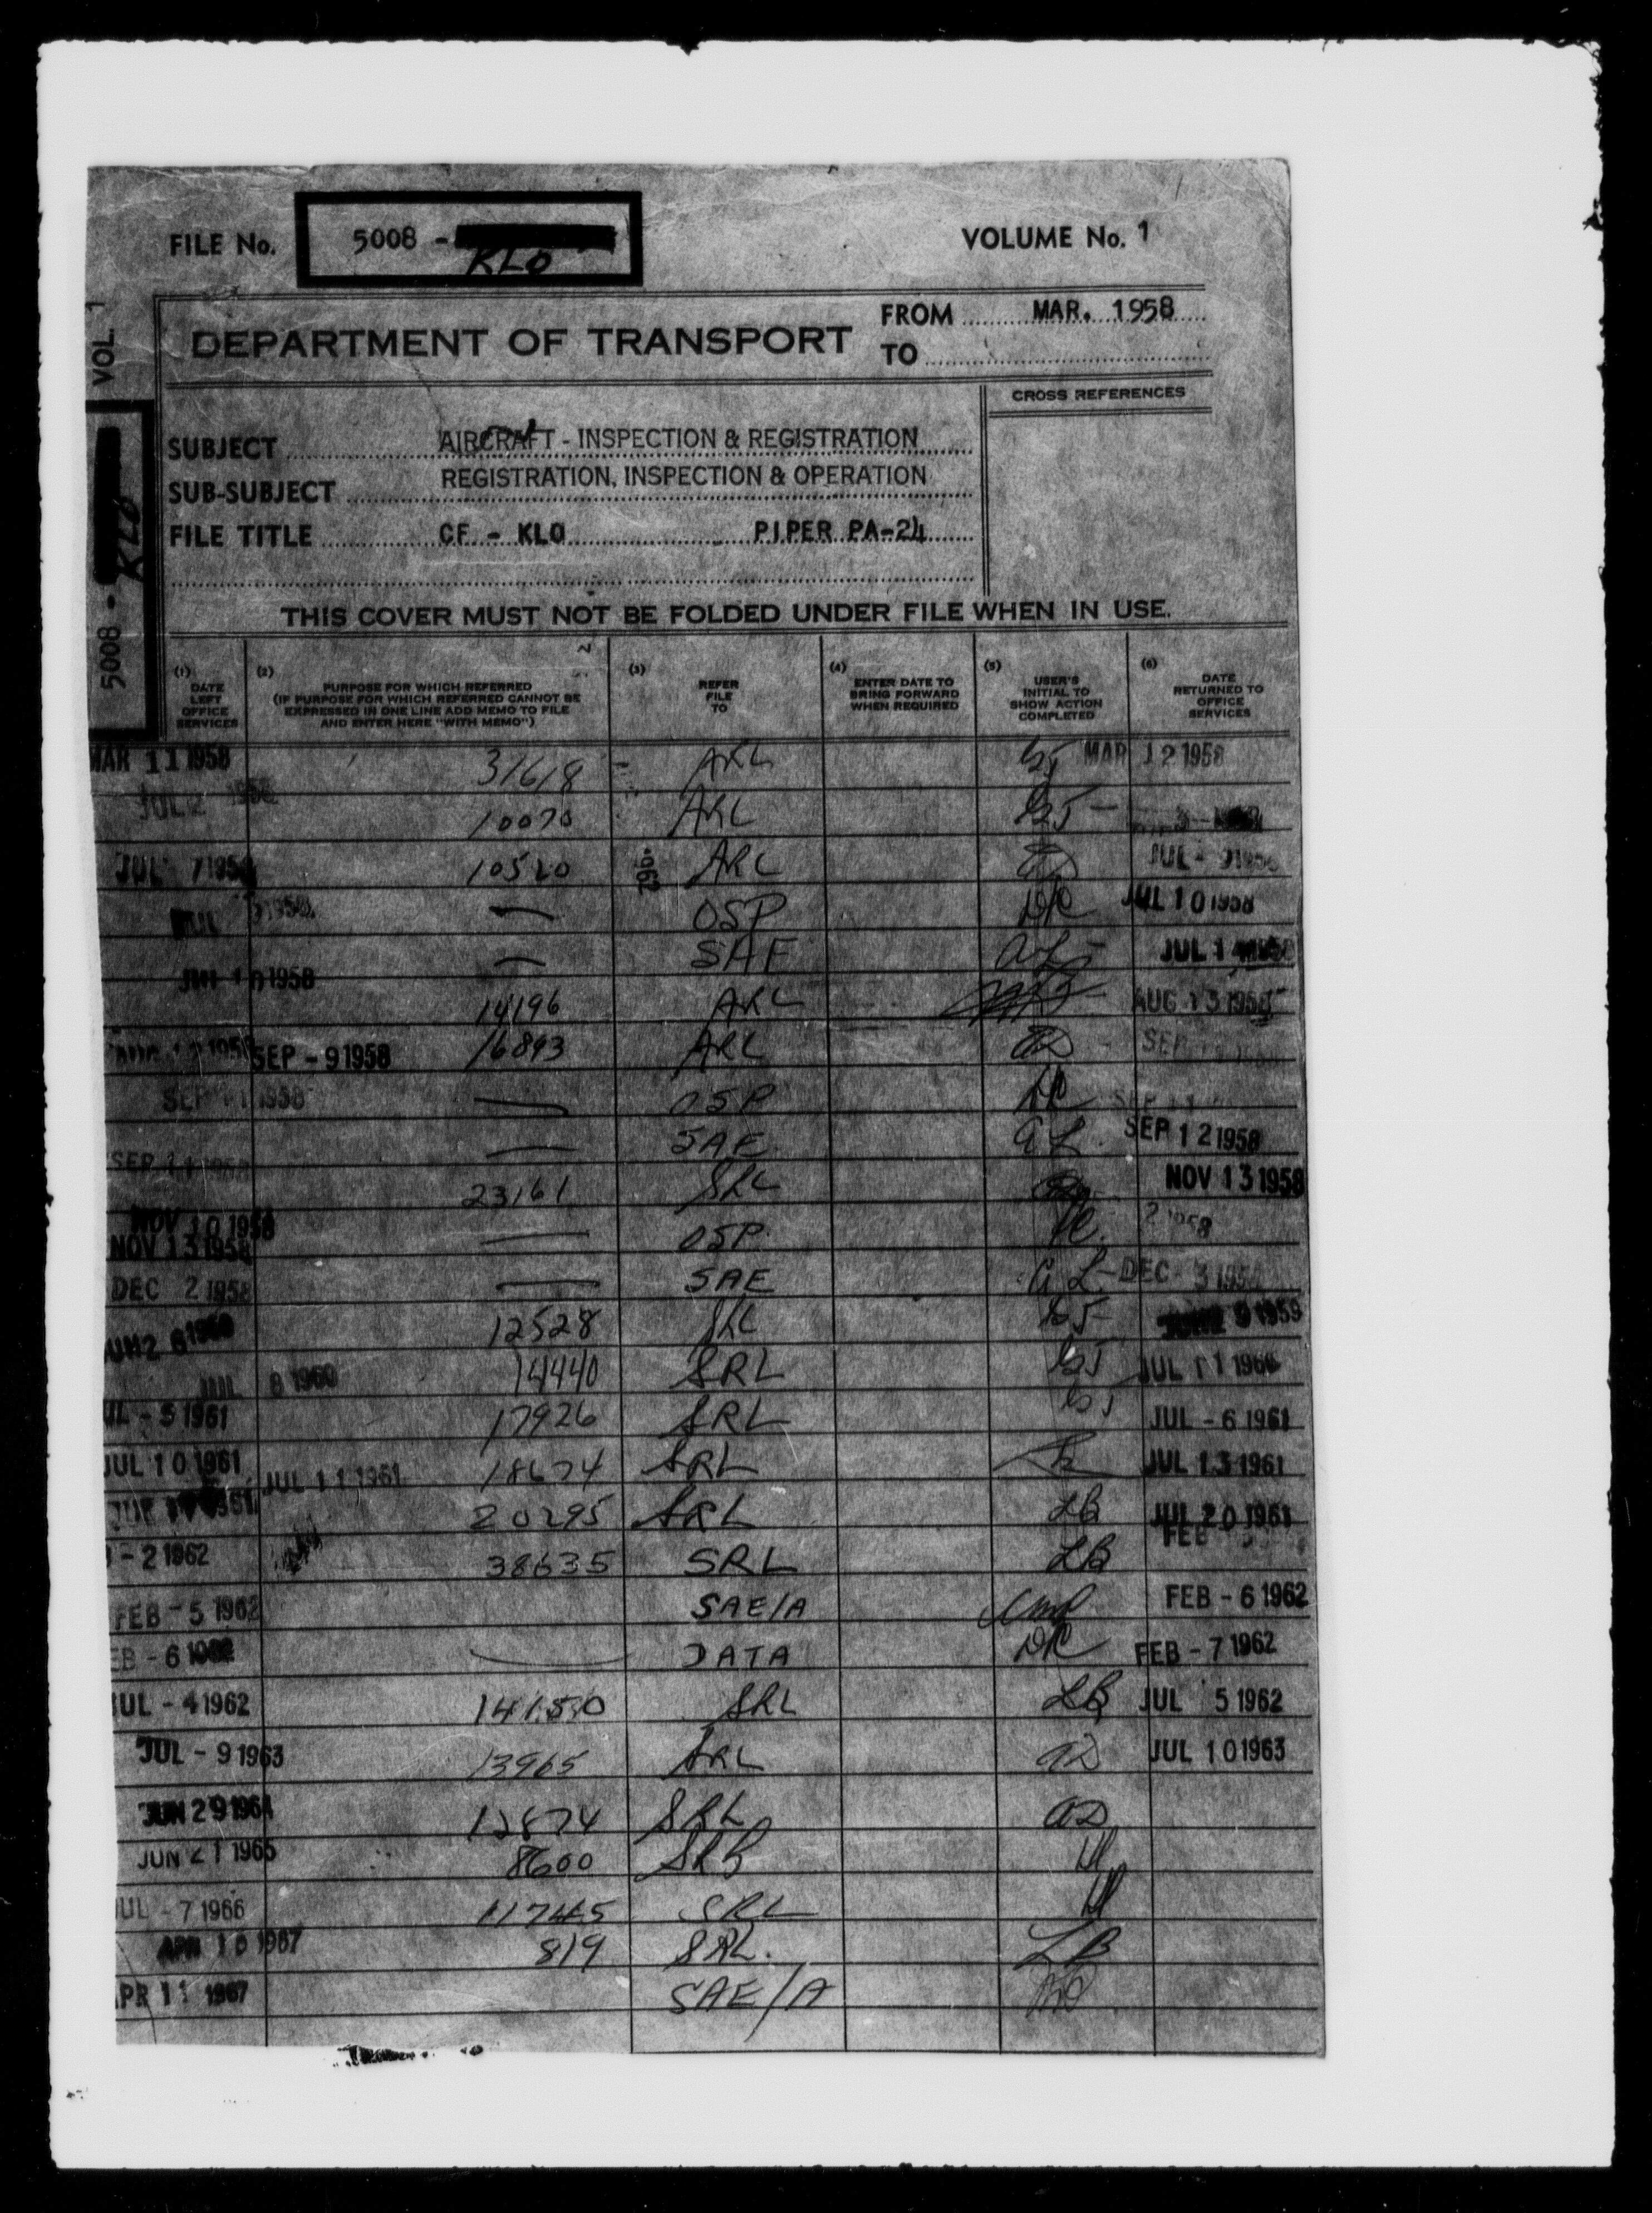 FILE No. 5008 - KLO VOLUME No. 1
VOL. 1
5008 - KLO
DEPARTMENT OF TRANSPORT
FROM MAR. 1958
TO
CROSS REFERENCES
SUBJECT AIRCRAFT - INSPECTION & REGISTRATION
SUB-SUBJECT REGISTRATION, INSPECTION & OPERATION
FILE TITLE CF - KLO PIPER PA-24
THIS COVER MUST NOT BE FOLDED UNDER FILE WHEN IN USE.
(1) DATE LEFT OFFICE SERVICES
(2) PURPOSE FOR WHICH REFERRED (IF PURPOSE FOR WHICH REFERRED CANNOT BE EXPRESSED IN ONE LINE ADD MEMO TO FILE AND ENTER HERE "WITH MEMO")
(3) REFER FILE TO
(4) ENTER DATE TO BRING FORWARD WHEN REQUIRED
(5) USER'S INITIAL TO SHOW ACTION COMPLETED
(6) DATE RETURNED TO OFFICE SERVICES
MAR 11 1958 31618 ARL MAR 12 1958
JUL 2 10070 ARL
JUL 7 1958 10520 ARL
1958 — OSP DC JUL 10 1958
1958 — SAE AL JUL 14
14196 ARL AUG 13 1958
SEP - 9 1958 16893 ARL AD SEP
SEP 11 1958 — OSP DC SEP 11
SEP 11 — SAE AL SEP 12 1958
NOV 10 1958 23161 SRL NOV 13 1958
NOV 13 1958 — OSP 1958
DEC 2 1958 — SAE AL DEC 3 1958
12528 SRL 1959
JUL 8 1960 14440 SRL JUL 11 1960
JUL - 5 1961 17926 SRL JUL - 6 1961
JUL 10 1961 JUL 11 1961 18674 SRL JUL 13 1961
20295 SRL LB JUL 20 1961
- 2 1962 38635 SRL LB FEB
FEB - 5 1962 SAE/A FEB - 6 1962
FEB - 6 DATA DC FEB - 7 1962
JUL - 4 1962 14150 SRL LB JUL 5 1962
JUL - 9 1963 13965 SRL AD JUL 10 1963
JUN 29 1964 12874 SRL AD
JUN 21 1965 8600
JUL - 7 1966 SRL
APR 10 1967 819 SRL. LB
APR 11 1967 SAE/A